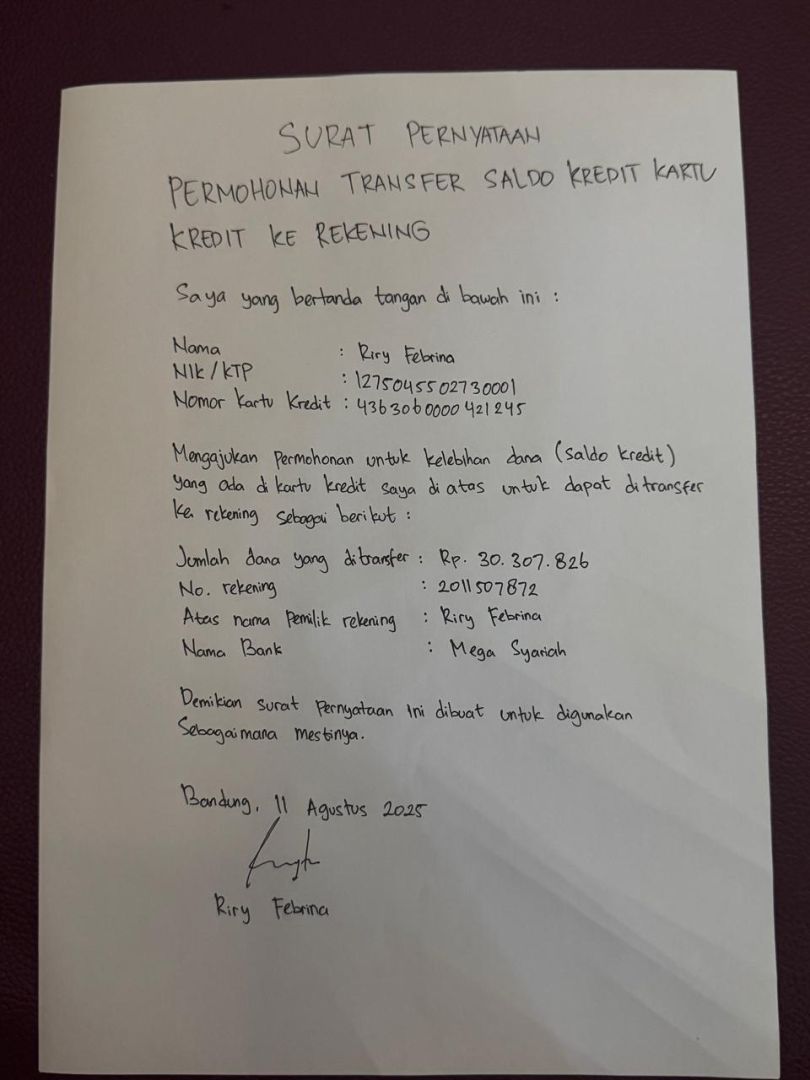 SURAT PERNYATAAN
PERMOHONAN TRANSFER SALDO KREDIT KARTU
KREDIT KE REKENING
Saya yang bertanda tangan di bawah ini :
Nama : Riry Febrina
NIK/KTP : 1275045502730001
Nomor Kartu Kredit : 4363060000421245
Mengajukan Permohonan untuk kelebihan dana (saldo kredit)
yang ada di kartu kredit saya di atas untuk dapat ditransfer
ke rekening sebagai berikut :
Jumlah dana yang ditransfer : Rp. 30.307.826
No. rekening : 2011507872
Atas nama Pemilik rekening : Riry Febrina
Nama Bank : Mega Syariah
Demikian surat Pernyataan ini dibuat untuk digunakan
Sebagaimana mestinya.
Bandung, 11 Agustus 2025
Riry Febrina